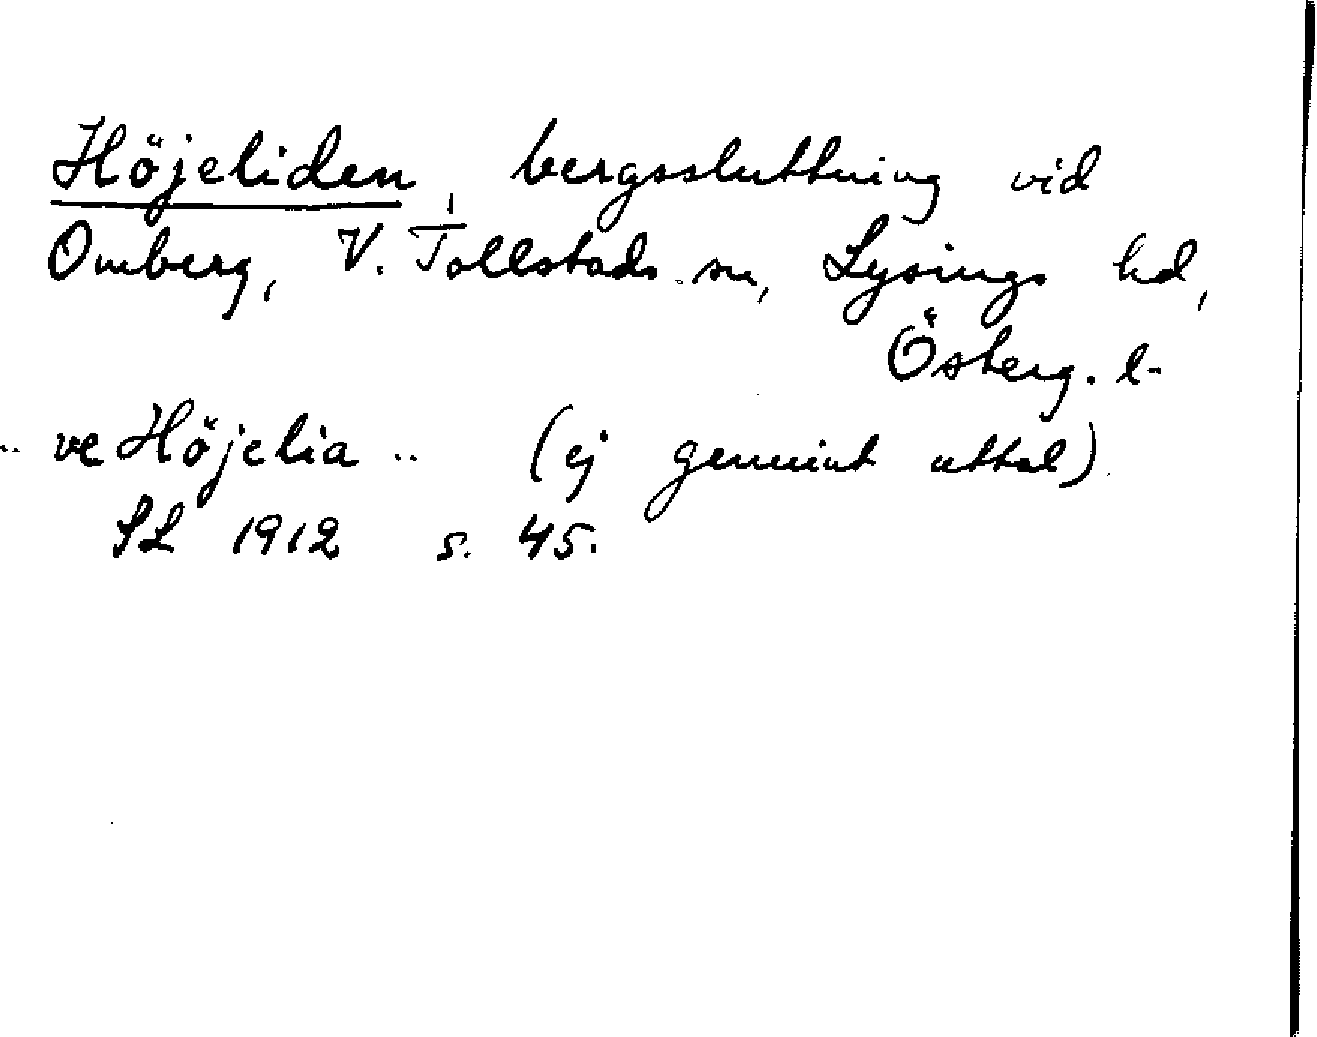 Höjeliden, bergssluttning vid
Omberg, V. Tollstads sn, Lysings hd,
Österg. l-
.. ve Höjelia .. (ej genuint uttal)
SL 1912 s. 45.